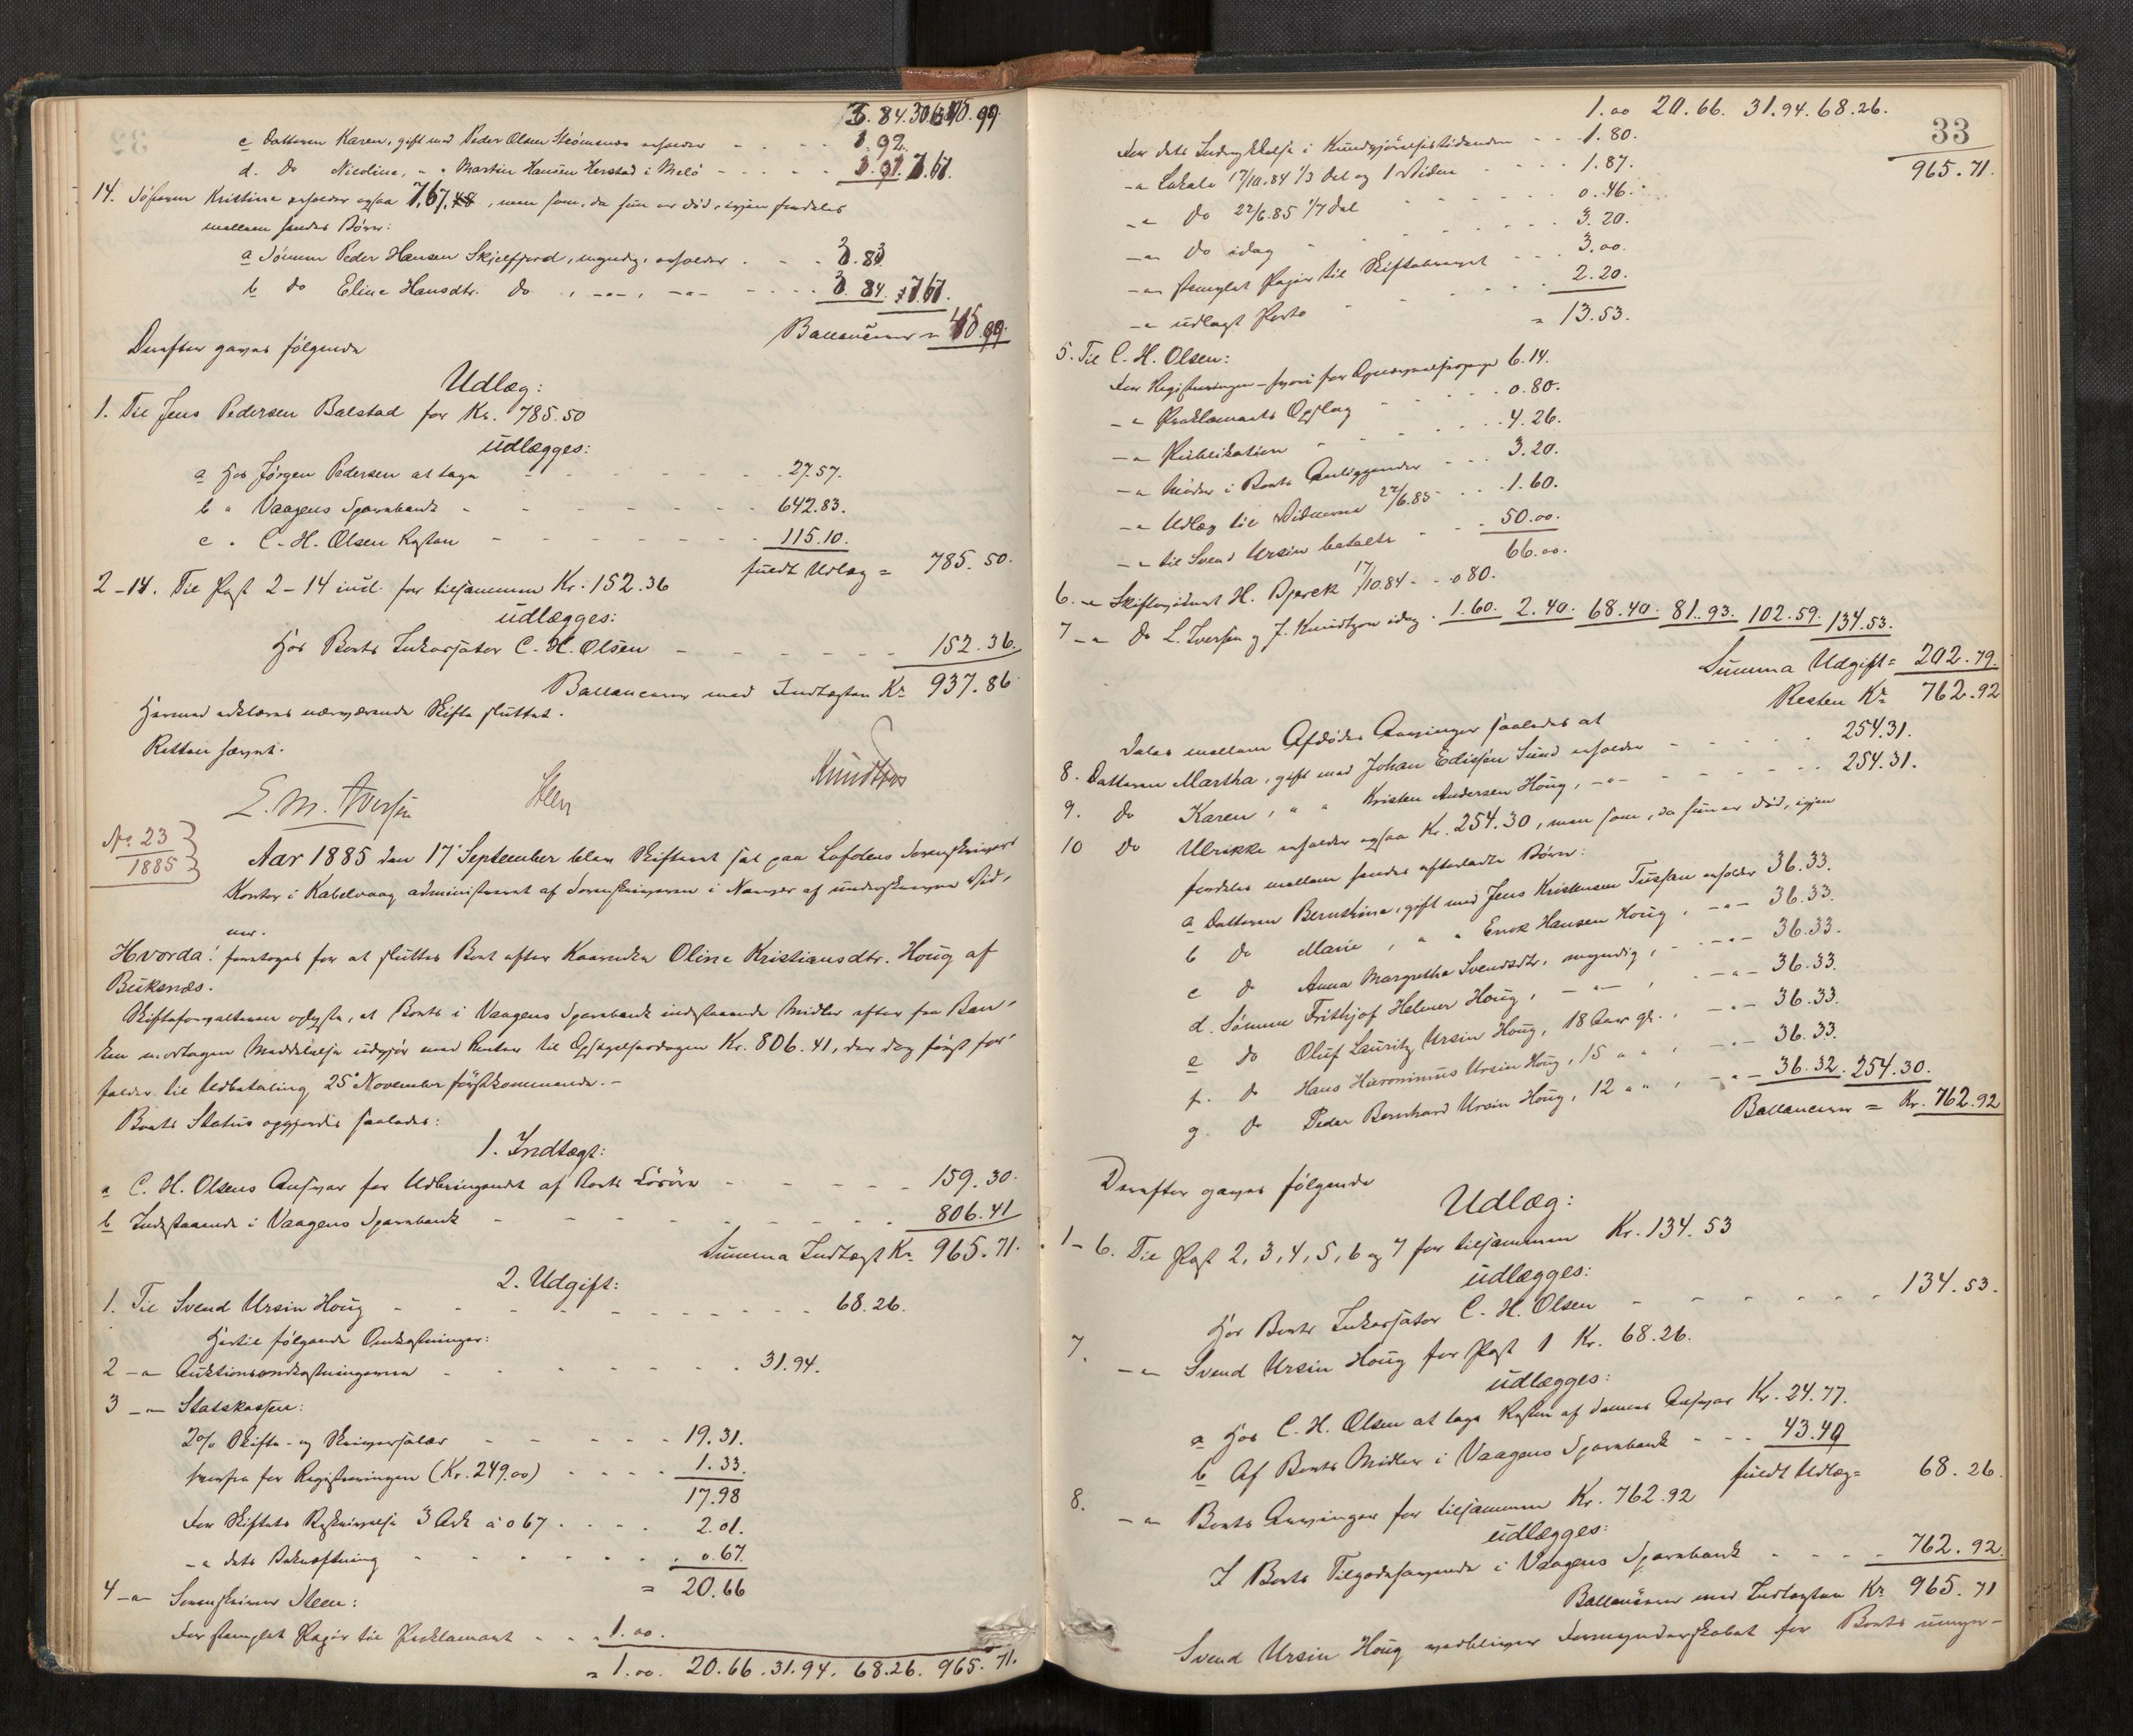 c Datteren Karen, gift med Peder Olsen Strömsnes erholder - - - - 1.92.
d. do Nicoline, " " Martin Hansen Herstad i Melö - - - - - 7.67.
14. Søsteren Kristine erholder ogsaa 7,67, men som, da hun er død, igjen fordeles
mellem hendes Børn:
a Sønnen Peder Hansen Skjelfjord, myndig, erholder . - . 3.83
b do Eline Hansdtr. do , -"- , -"- - - - - 3.84. 7.67.
Ballancerer =
Derefter gaves følgende
Udlæg:
1. Til Jens Pedersen Balstad for Kr. 785.50
udlægges:
a Hos Jørgen Pedersen at tage - - - - - - 27.57.
b " Vaagens Sparebank - - - - - - - 642.83.
c " C. H. Olsen Resten - - - - - - - 115.10.
fuldt Udlæg = 785.50.
2-14. Til Post 2-14 incl. for tilsammen Kr. 152.36
udlægges:
Hos Boets Inkassator C. H. Olsen - - - - - - 152.36.
Ballancerer med Indtægten Kr. 937.86
Hermed erklæres nærværende Skifte sluttet.
Retten hævet.
L. M. Iversen Steen Knudtzon
No. 23
1885
Aar 1885 den 17de September blev Skifteret sat paa Lofotens Sorenskriver-
Kontor i Kabelvaag administreret af Sorenskriveren i Nærvær af underskrevne Vid-
ner.
Hvorda! foretoges for at sluttes Boet efter Kaarenke Oline Kristiansdtr. Houg af
Buksnæs.
Skifteforvalteren oplyste, at Boets i Vaagens Sparebank indestaaende Midler efter fra Ban-
ken modtagen Meddelelse udgjør med Renter til Opsigelsesdagen Kr. 806.41, der dog først for-
falder til Udbetaling 25de November førstkommende. -
Boets Status opgjordes saaledes:
1. Indtægt:
a C. H. Olsens Ansvar for Udbringendet af Boets Løsøre - - - - - 159.30.
b Indestaaende i Vaagens Sparebank - - - - - - - - 806.41
Summa Indtægt Kr. 965.71.
2. Udgift:
1. Til Svend Ursin Houg - - - - - - - - - 68.26.
Hertil følgende Omkostninger:
2 -"- Auktionsomkostningerne - - - - - - - 31.94.
3 -"- Statskassen:
2% Skifte- og Skriversalær - - - - - 19.31.
herfra for Registreringen (Kr. 249.00) - - - - 1.33.
17.98
For Skiftets Beskrivelse 3 Ark à 0.67 . - - . 2.01.
-"- dets Bekræftning - - - - - - - 0.67.
= 20.66
4 -"- Sorenskriver Steen:
For stemplet Papir til Proklamaet - - . 1.00.
= 1.00. 20.66. 31.94. 68.26. 965.71.
33
1.00 20.66. 31.94. 68.26. 965.71.
For dets Indrykkelse i Kundgjørelsestidenden - - 1.80.
-"- Lokale 17/10.84 1/3 Del og 1 Vidne - - - 1.87.
-"- do 22/6.85 1/7 Del - - - - - - 0.46.
-"- do idag - - - - - - - 3.20.
-"- stemplet Papir til Skiftebrevet - - - 3.00.
-"- udlagt Porto - - - - - - 2.20.
= 13.53.
5. Til C. H. Olsen:
For Registreringen - 6.14.
-"- Proklamaets Opslag - - - - . 0.80.
-"- Publikation - - - - - . 4.26.
-"- Møder i Boets Anliggender - - . 3.20.
-"- Udlæg til Vidnerne 22/6.85 - - . 1.60.
-"- til Svend Ursin betalte - - . 50.00.
66.00.
6. -"- Skiftevidnet H. Bjerck 17/10.84 - - 0.80.
7 -"- do L. Iversen og J. Knudtzon idag . 1.60. 2.40. 68.40. 81.93. 102.59. 134.53.
Summa Udgift = 202.79.
Resten Kr. 762.92
deles mellem Afdødes Arvinger saaledes at
8. Datteren Martha, gift med Johan Edissen Sund erholder - - - - - 254.31.
9. do Karen, " " Kristen Andersen Houg, -"- - - - - - 254.31.
10 do Ulrikke erholder ogsaa Kr. 254.30, men som, da hun er død, igjen
fordeles mellem hendes efterladte Børn:
a Datteren Bernthine, gift med Jens Kristensen Tussan erholder 36.33.
b do Marie, " " Enok Hansen Houg, -"- 36.33.
c do Anna Margrethe Svendsdtr. myndig, -"- 36.33.
d. Sønnen Frithjof Helmer Houg, -"- , -"- 36.33.
e do Oluf Lauritz Ursin Houg, 18 Aar gl., -"- 36.33.
f. do Hans Hieronimus Ursin Houg, 15 " " , -"- 36.33.
g. do Peder Bernhard Ursin Houg, 12 " " , -"- 36.32. 254.30.
Ballancerer = Kr. 762.92
Derefter gaves følgende
Udlæg:
1-6. Til Post 2, 3, 4, 5, 6 og 7 for tilsammen Kr. 134.53
udlægges:
Hos Boets Inkassator C. H. Olsen - - - - - - - 134.53.
7. -"- Svend Ursin Houg for Post 1 Kr. 68.26.
udlægges:
a Hos C. H. Olsen at tage Resten af dennes Ansvar Kr. 24.77.
b Af Boets Midler i Vaagens Sparebank - - - 43.49
fuldt Udlæg = 68.26.
8. -"- Boets Arvinger for tilsammen Kr. 762.92
udlægges:
I Boets Tilgodehavende i Vaagens Sparebank - - - - 762.92.
Ballancerer med Indtægten Kr. 965.71
Svend Ursin Houg vedbliver Formynderskabet for Boets umyn-